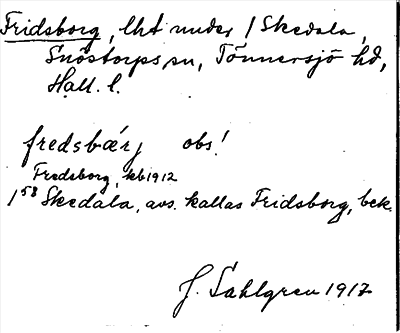 Fridsborg, lht under 1 Skedala,
Snöstorps sn, Tönnersjö hd,
Hall. l.
fredsbærj obs!
Fredsborg, kb 1912
1⁵⁸ Skedala, avs. kallas Fridsborg, bek.
J. Sahlgren 1917